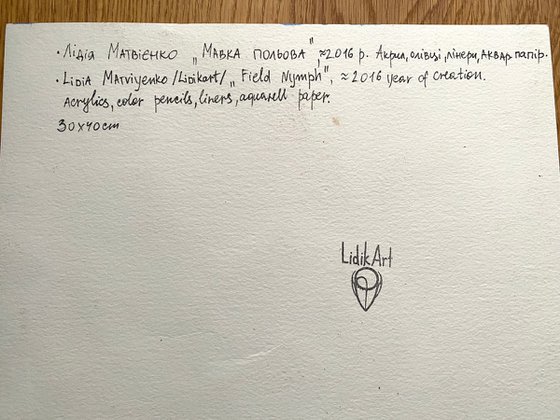 · Лідія Матвієнко „Мавка польова", ≈2016 р. Акрил, олівці, лінери, аквар. папір.
· Lidia Matviyenko /Lidikart/ „Field Nymph", ≈ 2016 year of creation.
Acrylics, color pencils, liners, aquarell paper.
30x40cm
LidikArt